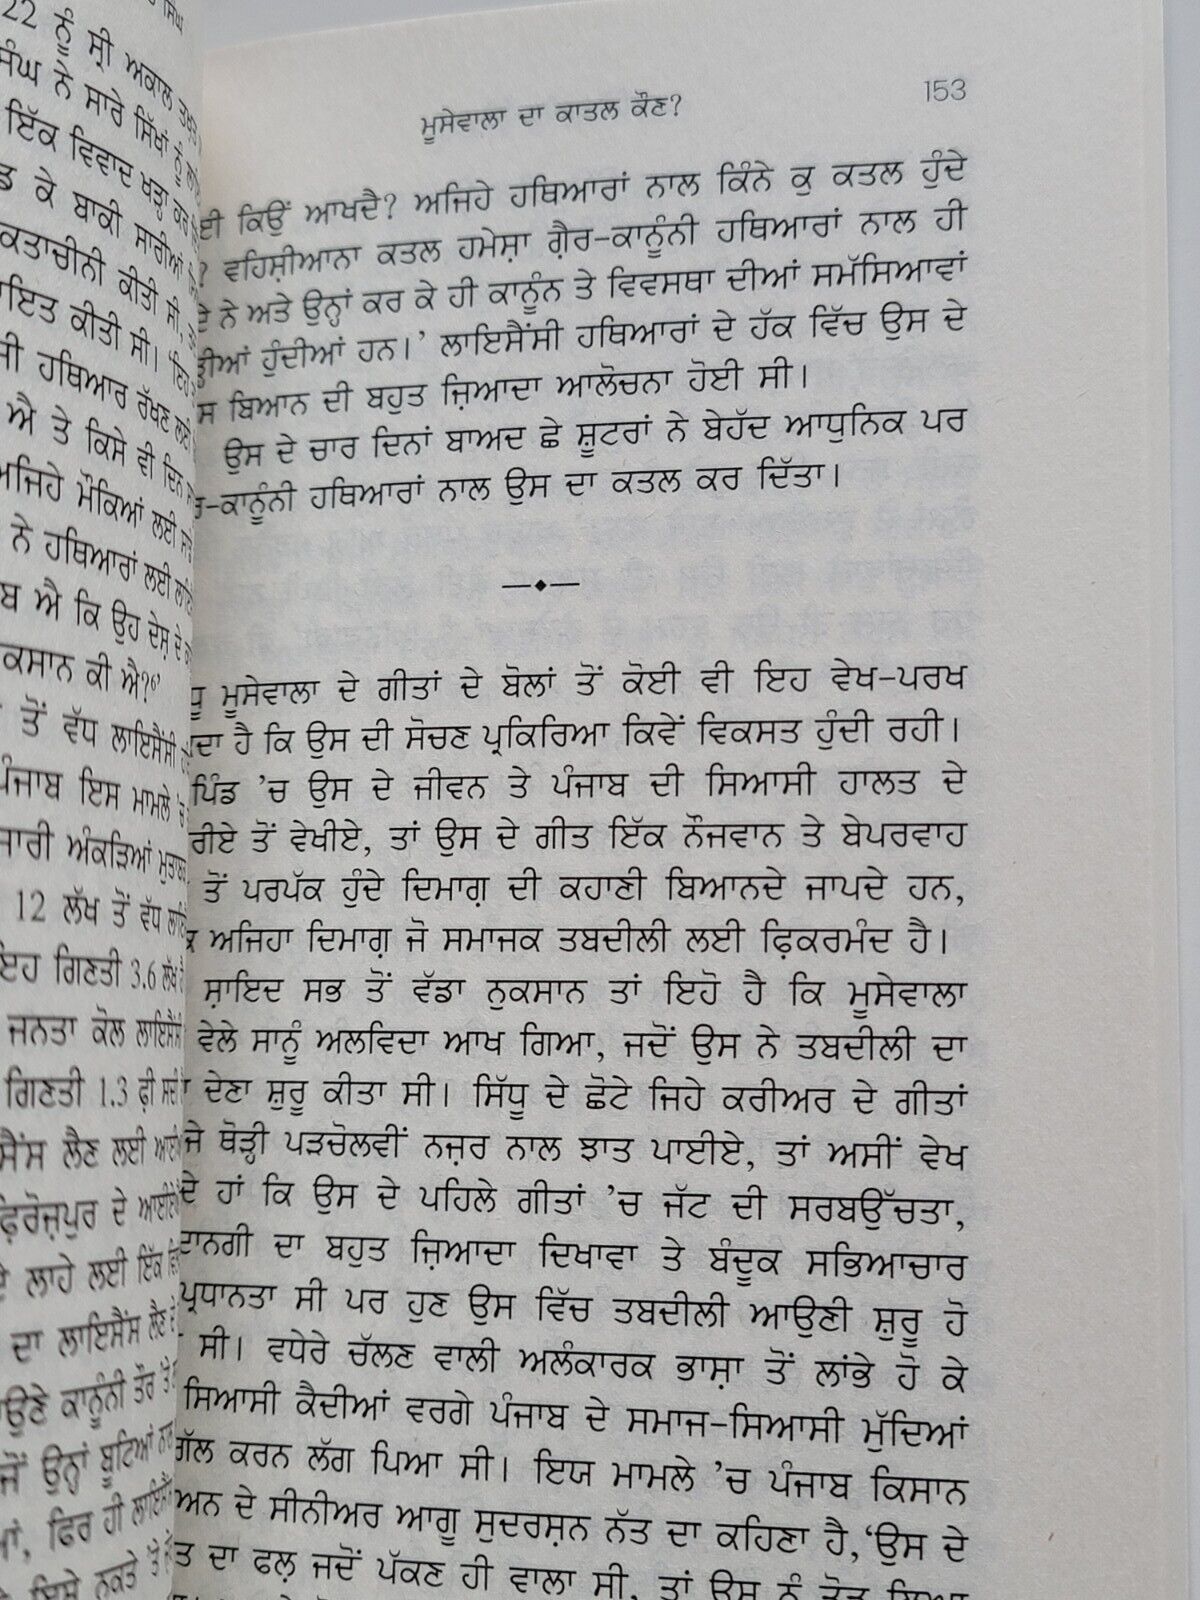 22 ਨੂੰ ਸ੍ਰੀ ਅਕਾਲ
ਸਿੰਘ ਨੇ ਸਾਰੇ ਸਿੱਖਾਂ ਨੂੰ
ਇੱਕ ਵਿਵਾਦ ਖੜ੍ਹਾ ਕਰ
ਕੇ ਬਾਕੀ ਸਾਰੀਆਂ
ਕੀਤੀ ਸੀ,
ਕੀਤੀ ਸੀ।
ਹਥਿਆਰ ਰੱਖਣ ਲਈ
ਐ ਤੇ ਕਿਸੇ ਵੀ ਦਿਨ
ਅਜਿਹੇ ਮੌਕਿਆਂ ਲਈ
ਨੇ ਹਥਿਆਰਾਂ ਲਈ
ਐ ਕਿ ਉਹ ਦੇਸ਼ ਦੇ
ਕੀ ਐ?
ਤੋਂ ਵੱਧ ਲਾਇਸੈਂਸੀ
ਪੰਜਾਬ ਇਸ ਮਾਮਲੇ 'ਚ
ਜਾਰੀ ਅੰਕੜਿਆਂ
12 ਲੱਖ ਤੋਂ ਵੱਧ
ਇਹ ਗਿਣਤੀ 3.6 ਲੱਖ
ਜਨਤਾ ਕੋਲ
ਗਿਣਤੀ 1.3 ਫ਼ੀ ਸਦੀ
ਲੈਣ ਲਈ
ਫ਼ਿਰੋਜ਼ਪੁਰ ਦੇ
ਲਾਹੇ ਲਈ ਇੱਕ
ਦਾ ਲਾਇਸੈਂਸ ਲੈਣ
ਕਾਨੂੰਨੀ ਤੌਰ
ਉਨ੍ਹਾਂ ਬੂਟਿਆਂ
ਫਿਰ ਹੀ
ਮੂਸੇਵਾਲਾ ਦਾ ਕਾਤਲ ਕੌਣ? 153
ਕਿਉਂ ਆਖਦੈ? ਅਜਿਹੇ ਹਥਿਆਰਾਂ ਨਾਲ ਕਿੰਨੇ ਕੁ ਕਤਲ ਹੁੰਦੇ
? ਵਹਿਸ਼ੀਆਨਾ ਕਤਲ ਹਮੇਸ਼ਾ ਗ਼ੈਰ-ਕਾਨੂੰਨੀ ਹਥਿਆਰਾਂ ਨਾਲ ਹੀ
ਨੇ ਅਤੇ ਉਨ੍ਹਾਂ ਕਰ ਕੇ ਹੀ ਕਾਨੂੰਨ ਤੇ ਵਿਵਸਥਾ ਦੀਆਂ ਸਮੱਸਿਆਵਾਂ
ਹੁੰਦੀਆਂ ਹਨ।’ ਲਾਇਸੈਂਸੀ ਹਥਿਆਰਾਂ ਦੇ ਹੱਕ ਵਿੱਚ ਉਸ ਦੇ
ਸ ਬਿਆਨ ਦੀ ਬਹੁਤ ਜ਼ਿਆਦਾ ਆਲੋਚਨਾ ਹੋਈ ਸੀ।
ਉਸ ਦੇ ਚਾਰ ਦਿਨਾਂ ਬਾਅਦ ਛੇ ਸ਼ੂਟਰਾਂ ਨੇ ਬੇਹੱਦ ਆਧੁਨਿਕ ਪਰ
-ਕਾਨੂੰਨੀ ਹਥਿਆਰਾਂ ਨਾਲ ਉਸ ਦਾ ਕਤਲ ਕਰ ਦਿੱਤਾ।
ਮੂਸੇਵਾਲਾ ਦੇ ਗੀਤਾਂ ਦੇ ਬੋਲਾਂ ਤੋਂ ਕੋਈ ਵੀ ਇਹ ਵੇਖ-ਪਰਖ
ਦਾ ਹੈ ਕਿ ਉਸ ਦੀ ਸੋਚਣ ਪ੍ਰਕਿਰਿਆ ਕਿਵੇਂ ਵਿਕਸਤ ਹੁੰਦੀ ਰਹੀ।
ਪਿੰਡ ’ਚ ਉਸ ਦੇ ਜੀਵਨ ਤੇ ਪੰਜਾਬ ਦੀ ਸਿਆਸੀ ਹਾਲਤ ਦੇ
ਰੀਏ ਤੋਂ ਵੇਖੀਏ, ਤਾਂ ਉਸ ਦੇ ਗੀਤ ਇੱਕ ਨੌਜਵਾਨ ਤੇ ਬੇਪਰਵਾਹ
ਤੋਂ ਪਰਪੱਕ ਹੁੰਦੇ ਦਿਮਾਗ਼ ਦੀ ਕਹਾਣੀ ਬਿਆਨਦੇ ਜਾਪਦੇ ਹਨ,
ਅਜਿਹਾ ਦਿਮਾਗ਼ ਜੋ ਸਮਾਜਕ ਤਬਦੀਲੀ ਲਈ ਫ਼ਿਕਰਮੰਦ ਹੈ।
ਸ਼ਾਇਦ ਸਭ ਤੋਂ ਵੱਡਾ ਨੁਕਸਾਨ ਤਾਂ ਇਹੋ ਹੈ ਕਿ ਮੂਸੇਵਾਲਾ
ਵੇਲੇ ਸਾਨੂੰ ਅਲਵਿਦਾ ਆਖ ਗਿਆ, ਜਦੋਂ ਉਸ ਨੇ ਤਬਦੀਲੀ ਦਾ
ਦੇਣਾ ਸ਼ੁਰੂ ਕੀਤਾ ਸੀ। ਸਿੱਧੂ ਦੇ ਛੋਟੇ ਜਿਹੇ ਕਰੀਅਰ ਦੇ ਗੀਤਾਂ
ਜੇ ਥੋੜ੍ਹੀ ਪੜਚੋਲਵੀਂ ਨਜ਼ਰ ਨਾਲ ਝਾਤ ਪਾਈਏ, ਤਾਂ ਅਸੀਂ ਵੇਖ
ਦੇ ਹਾਂ ਕਿ ਉਸ ਦੇ ਪਹਿਲੇ ਗੀਤਾਂ ’ਚ ਜੱਟ ਦੀ ਸਰਬਉੱਚਤਾ,
ਦਾਨਗੀ ਦਾ ਬਹੁਤ ਜ਼ਿਆਦਾ ਦਿਖਾਵਾ ਤੇ ਬੰਦੂਕ ਸਭਿਆਚਾਰ
ਪ੍ਰਧਾਨਤਾ ਸੀ ਪਰ ਹੁਣ ਉਸ ਵਿੱਚ ਤਬਦੀਲੀ ਆਉਣੀ ਸ਼ੁਰੂ ਹੋ
ਸੀ। ਵਧੇਰੇ ਚੱਲਣ ਵਾਲੀ ਅਲੰਕਾਰਕ ਭਾਸ਼ਾ ਤੋਂ ਲਾਂਭੇ ਹੋ ਕੇ
ਸਿਆਸੀ ਕੈਦੀਆਂ ਵਰਗੇ ਪੰਜਾਬ ਦੇ ਸਮਾਜ-ਸਿਆਸੀ ਮੁੱਦਿਆਂ
ਗੱਲ ਕਰਨ ਲੱਗ ਪਿਆ ਸੀ। ਇਯ ਮਾਮਲੇ ’ਚ ਪੰਜਾਬ ਕਿਸਾਨ
ਅਨ ਦੇ ਸੀਨੀਅਰ ਆਗੂ ਸੁਦਰਸ਼ਨ ਨੱਤ ਦਾ ਕਹਿਣਾ ਹੈ, ‘ਉਸ ਦੇ
ਤ ਦਾ ਫਲ਼ ਜਦੋਂ ਪੱਕਣ ਹੀ ਵਾਲਾ ਸੀ, ਤਾਂ ਉਸ ਨੂੰ ਤੋੜ ਲਿਆ